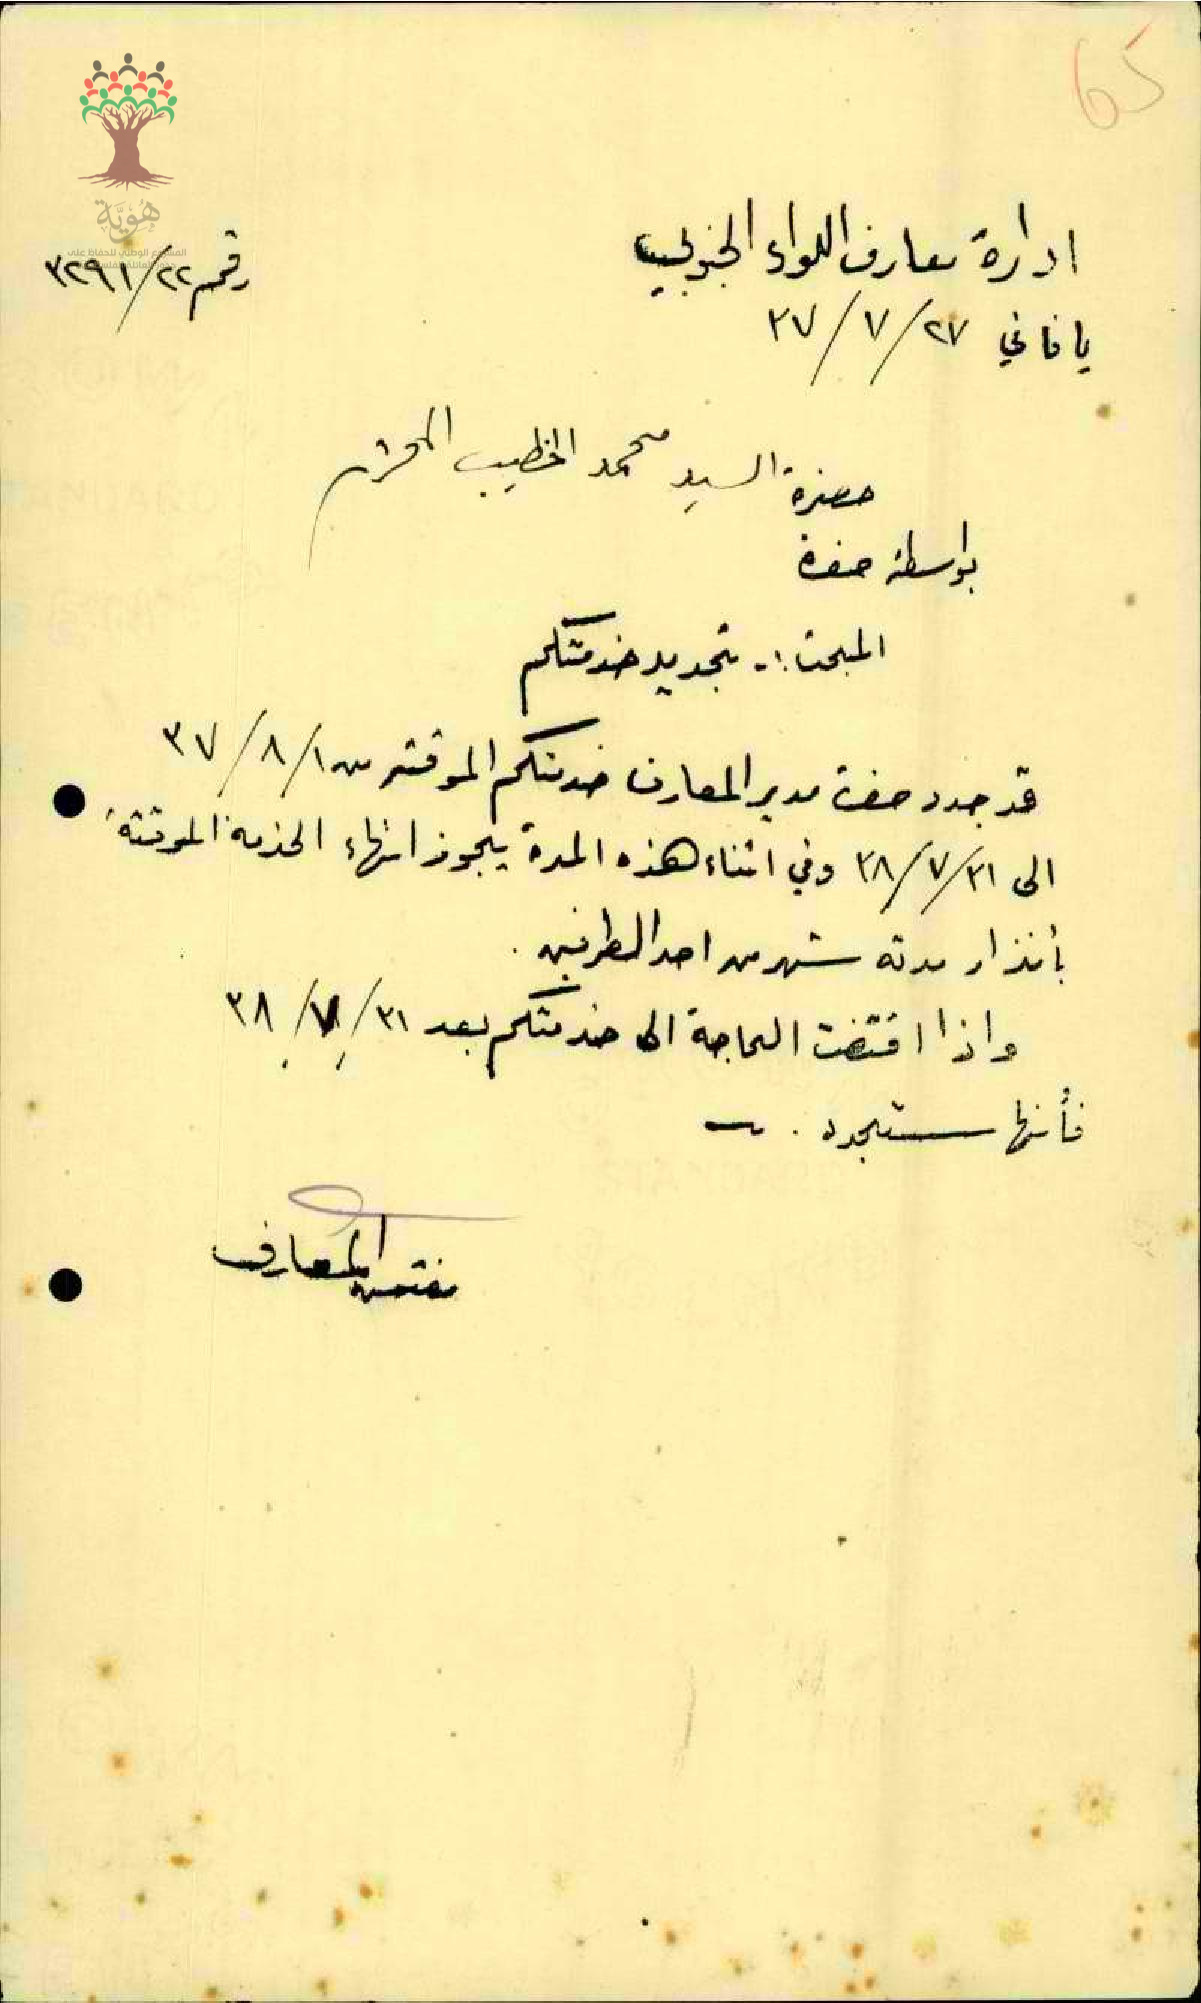 65
هُوِيَّة
المشروع الوطني للحفاظ على
ادارة معارف اللواء الجنوبي
رقم ٢٢/٣٢٩١
يافا في ٢٧/٧/٣٧
حضرة السيد محمد الخطيب المحترم
بواسطة حضرة
المبحث :- تجديد خدمتكم
قد جدد حضرة مدير المعارف خدمتكم الموقتة من ٣٧/٨/١
الى ٣٨/٧/٣١ وفي اثناء هذه المدة يجوز انهاء الخدمة الموقتة
بأنذار مدته شهر من احد الطرفين .
واذا اقتضت الحاجة الى خدمتكم بعد ٣٨/٧/٣١
فأنها ستجدد .
مفتش المعارف